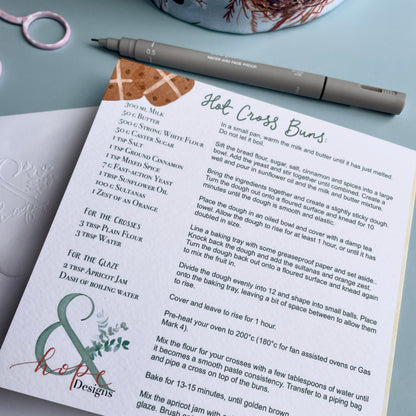 0.5
WATER AND FADE PROOF
Hot Cross Buns:
300 ml Milk
50 g Butter
500 g Strong White Flour
50 g Caster Sugar
1 tsp Salt
1 tsp Ground Cinnamon
1 tsp Mixed Spice
7 g Fast-action Yeast
1 tbsp Sunflower Oil
100 g Sultanas
1 Zest of an Orange
For the Crosses
3 tbsp Plain Flour
3 tbsp Water
For the Glaze
2 tbsp Apricot Jam
Dash of boiling water
In a small pan, warm the milk and butter until it has just melted.
Do not let it boil.
Sift the bread flour, sugar, salt, cinnamon and spices into a large
bowl. Add the yeast and stir together until combined. Create a
well and pour in sunflower oil and the milk and butter mixture.
Bring the ingredients together and create a slightly sticky dough.
Turn the dough out onto a floured surface and knead for 10
minutes until the dough is smooth and elastic.
Place the dough in an oiled bowl and cover with a damp tea
towel. Allow the dough to rise for at least 1 hour, or until it has
doubled in size.
Line a baking tray with some greaseproof paper and set aside.
Knock back the dough and add the sultanas and orange zest.
Turn the dough back out onto a floured surface and knead again
to mix the fruit in.
Divide the dough evenly into 12 and shape into small balls. Place
onto the baking tray, leaving a bit of space between to allow them
to rise.
Cover and leave to rise for 1 hour.
Pre-heat your oven to 200°c (180°c for fan assisted ovens or Gas
Mark 4).
Mix the flour for your crosses with a few tablespoons of water until
it becomes a smooth paste consistency. Transfer to a piping bag
and pipe a cross on top of the buns.
Bake for 13-15 minutes, until golden brown
Mix the apricot jam with a
glaze. Brush
&
hope
Designs